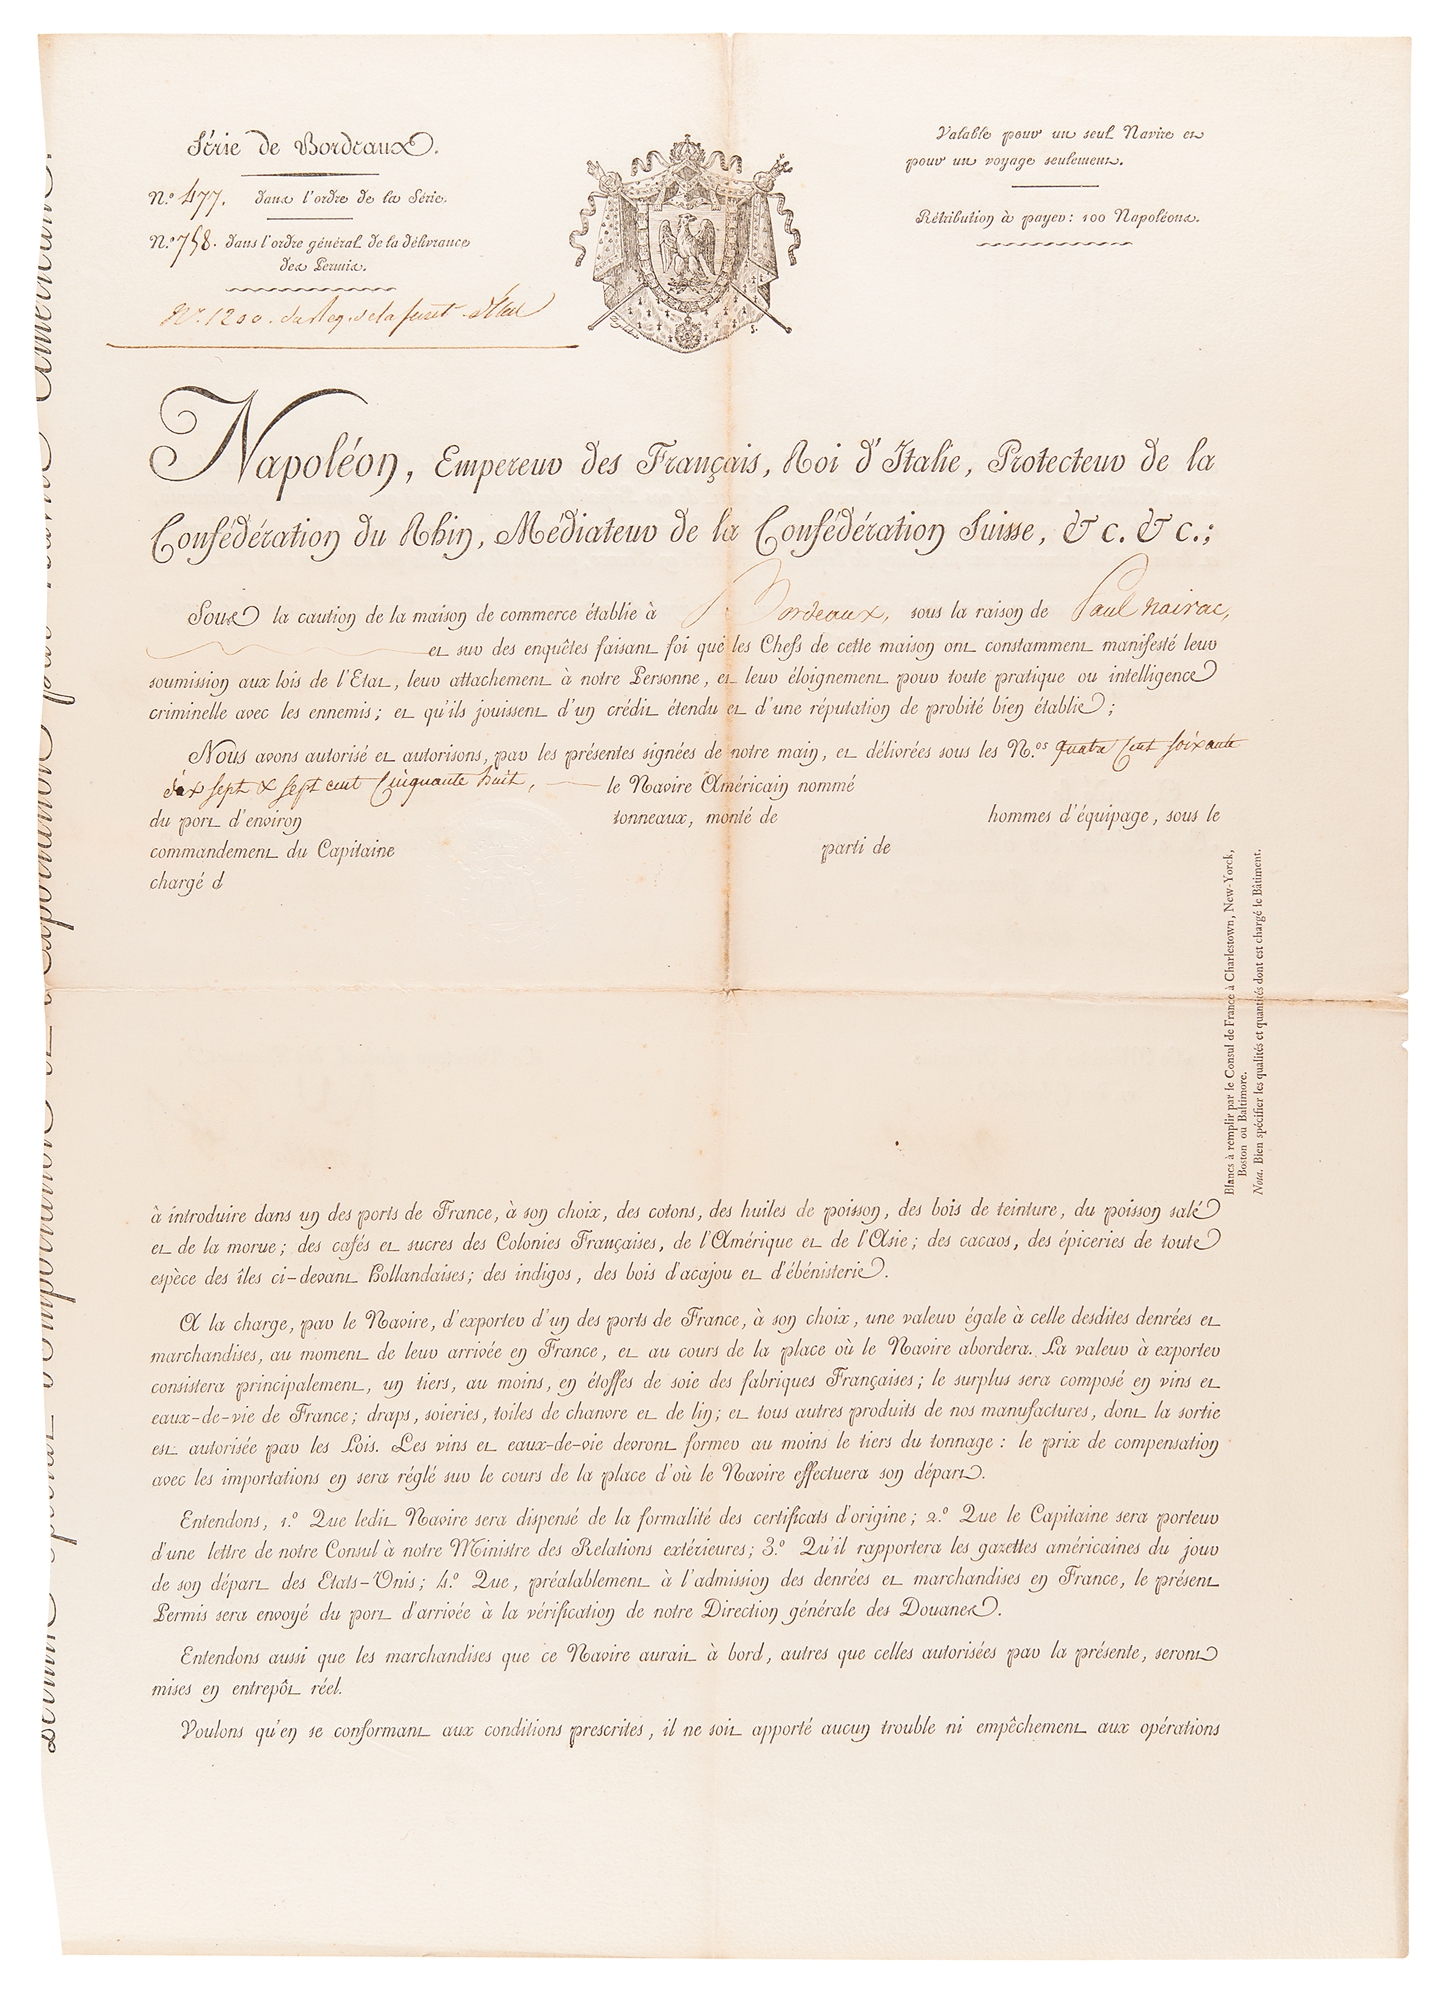 Série de Bordeaux.
N.º 477. dans l'ordre de la Série.
N.º 758. dans l'ordre général de la délivrance
des Permis.
N.º 1200. du Reg. de la
Valable pour un seul Navire et
pour un voyage seulement.
Rétribution à payer : 100 Napoléons.
Napoléon, Empereur des Français, Roi d'Italie, Protecteur de la
Confédération du Rhin, Médiateur de la Confédération Suisse, & c. & c. ;
Sous la caution de la maison de commerce établie à Bordeaux, sous la raison de Paul Nairac,
et sur des enquêtes faisant foi que les Chefs de cette maison ont constamment manifesté leur
soumission aux lois de l'Etat, leur attachement à notre Personne, et leur éloignement pour toute pratique ou intelligence
criminelle avec les ennemis ; et qu'ils jouissent d'un crédit étendu et d'une réputation de probité bien établie ;
Nous avons autorisé et autorisons, par les présentes signées de notre main, et délivrées sous les N.os quatre Cent soixante
dix sept & sept cent Cinquante huit, le Navire Américain nommé
du port d'environ tonneaux, monté de hommes d'équipage, sous le
commandement du Capitaine parti de
chargé d
Blancs à remplir par le Consul de France à Charlestown, New-Yorck,
Boston ou Baltimore.
Nota. Bien spécifier les qualités et quantités dont est chargé le Bâtiment.
à introduire dans un des ports de France, à son choix, des cotons, des huiles de poisson, des bois de teinture, du poisson salé
et de la morue ; des cafés et sucres des Colonies Françaises, de l'Amérique et de l'Asie ; des cacaos, des épiceries de toute
espèce des îles ci-devant Hollandaises ; des indigos, des bois d'acajou et d'ébénisterie.
A la charge, par le Navire, d'exporter d'un des ports de France, à son choix, une valeur égale à celle desdites denrées et
marchandises, au moment de leur arrivée en France, et au cours de la place où le Navire abordera. La valeur à exporter
consistera principalement, un tiers, au moins, en étoffes de soie des fabriques Françaises ; le surplus sera composé en vins et
eaux-de-vie de France ; draps, soieries, toiles de chanvre et de lin ; et tous autres produits de nos manufactures, dont la sortie
est autorisée par les Lois. Les vins et eaux-de-vie devront former au moins le tiers du tonnage : le prix de compensation
avec les importations en sera réglé sur le cours de la place d'où le Navire effectuera son départ.
Entendons, 1.º Que ledit Navire sera dispensé de la formalité des certificats d'origine ; 2.º Que le Capitaine sera porteur
d'une lettre de notre Consul à notre Ministre des Relations extérieures ; 3.º Qu'il rapportera les gazettes américaines du jour
de son départ des Etats-Unis ; 4.º Que, préalablement à l'admission des denrées et marchandises en France, le présent
Permis sera envoyé du port d'arrivée à la vérification de notre Direction générale des Douanes.
Entendons aussi que les marchandises que ce Navire aurait à bord, autres que celles autorisées par la présente, seront
mises en entrepôt réel.
Voulons qu'en se conformant aux conditions prescrites, il ne soit apporté aucun trouble ni empêchement aux opérations